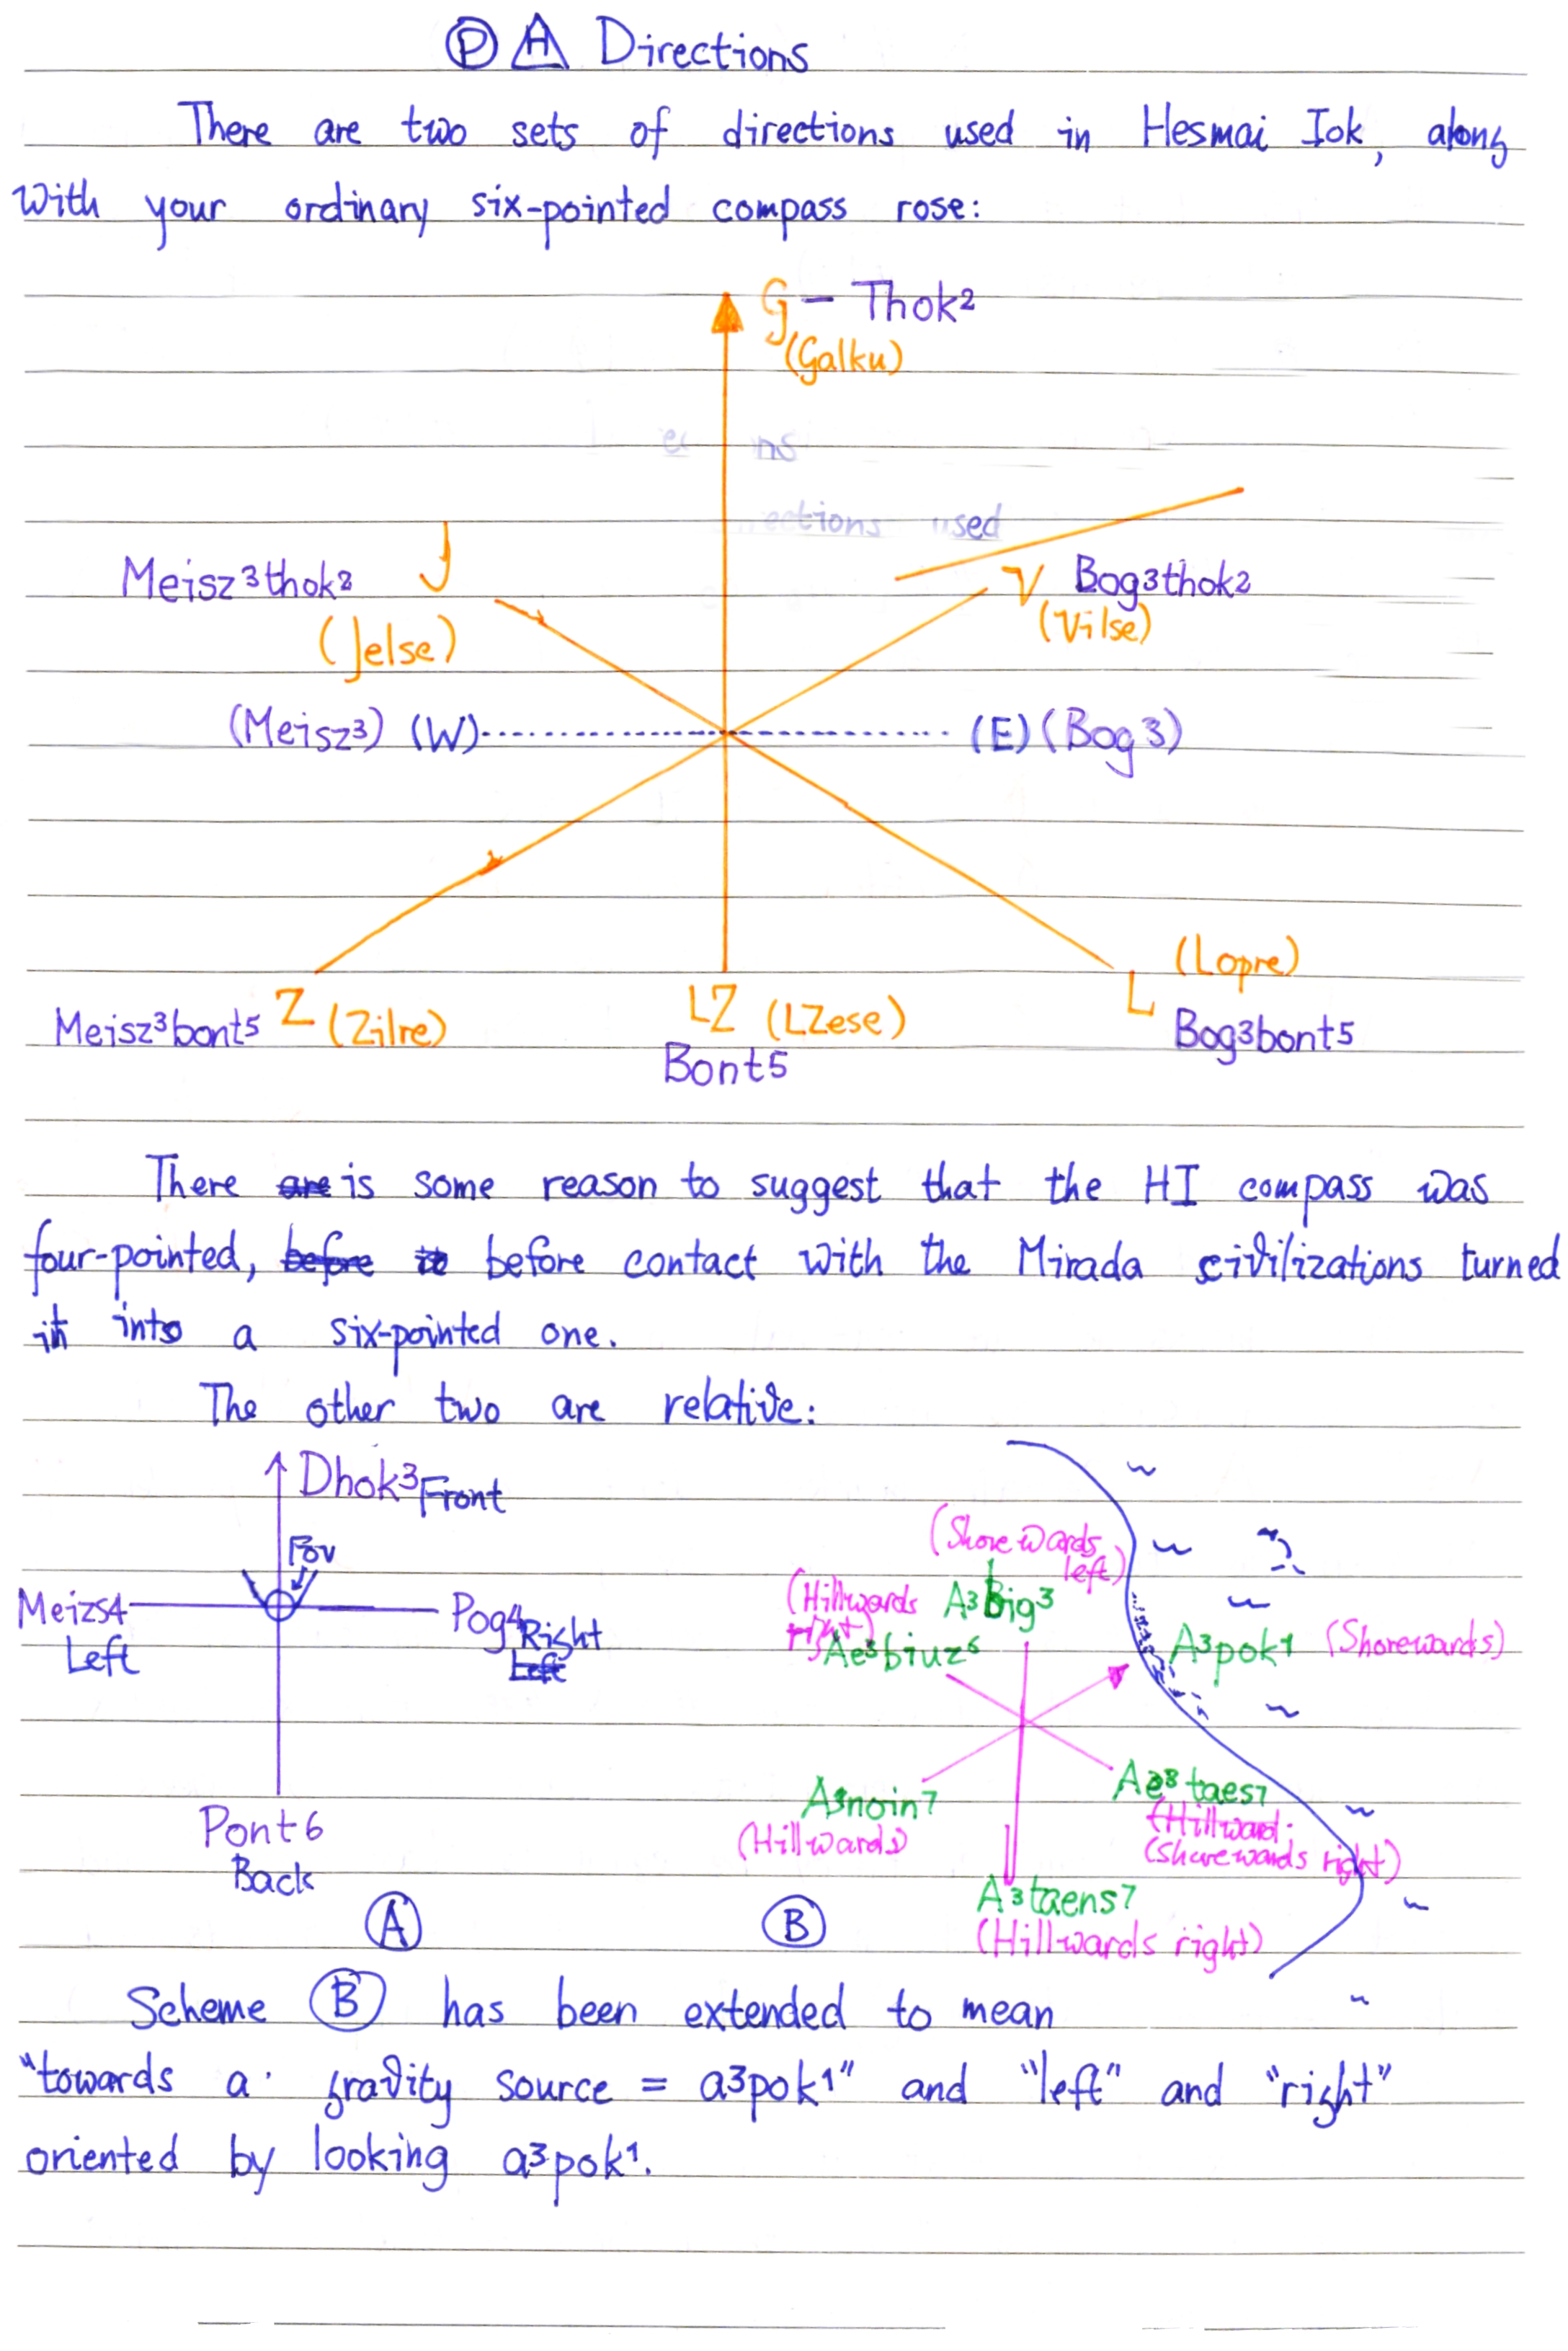 Ⓟ A Directions
There are two sets of directions used in Hesmai Iok, along
with your ordinary six-pointed compass rose:
G - Thok2
(Galku)
J
Meisz3thok2
V Bog3thok2
(Jelse)
(Vilse)
(Meisz3) (W)
(E) (Bog3)
(Lopre)
Meisz3bont5 Z (Zilre)
LZ (LZese)
L
Bog3bont5
Bont5
There are is some reason to suggest that the HI compass was
four-pointed, before it before contact with the Mirada civilizations turned
it into a six-pointed one.
The other two are relative:
Dhok3 Front
Fov
Meizs4
Left
Pog4 Right
Left
Pont6
Back
Ⓐ
(Shorewards
left)
(Hillwards
right)
A3Big3
Ae3biuz6
A3pok1 (Shorewards)
A3noin7
(Hillwards)
taes7
(Hillward
(Shorewards right)
A3taens7
(Hillwards right)
Ⓑ
Scheme Ⓑ has been extended to mean
"towards a gravity source = a3pok1" and "left" and "right"
oriented by looking a3pok1.